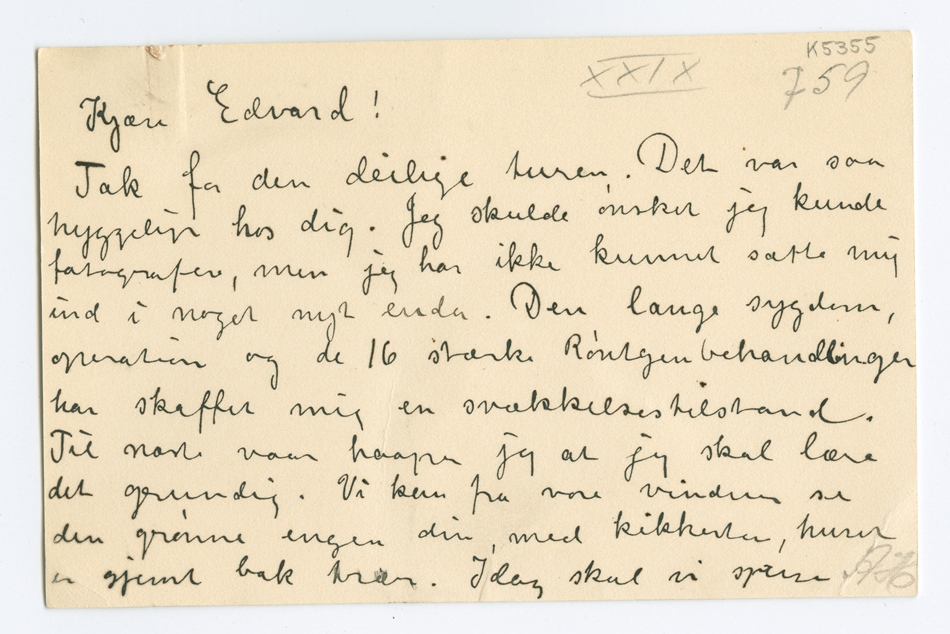 K5355
XXIX
759
Kjære Edvard!
Tak for den deilige turen. Det var saa
hyggelig hos dig. Jeg skulde ønsket jeg kunde
fotografere, men jeg har ikke kunnet sætte mig
ind i noget nyt enda. Den lange sygdom,
operation og de 16 stærke Röntgenbehandlinger
har skaffet mig en svækkelsestilstand.
Til næste vaar haaper jeg at jeg skal lære
det grundig. Vi kan fra vore vinduer se
den grønne engen din, med kikkerten, huset
er gjemt bak trær. Idag skal vi spise